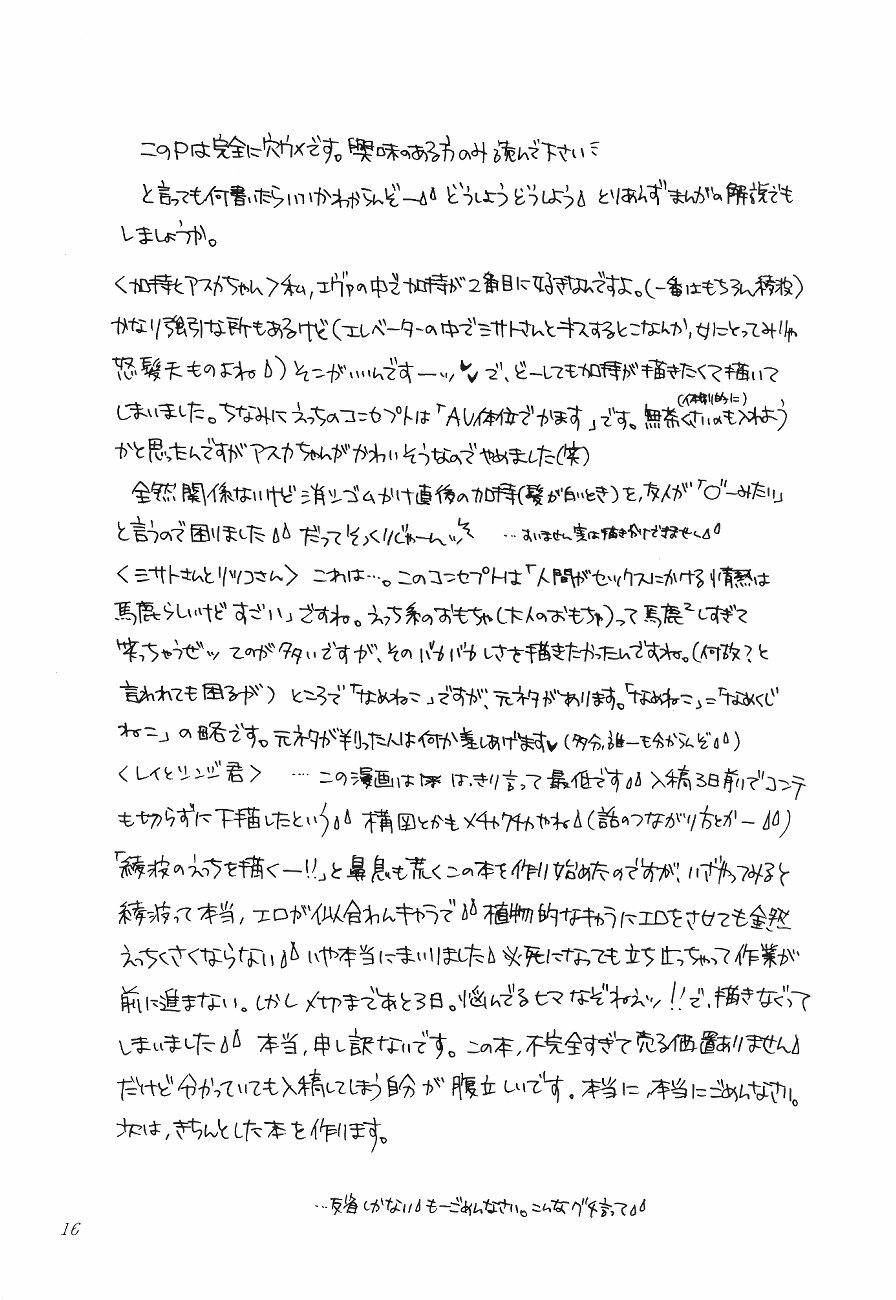 このPは完全に穴ウメです。興味のある方のみ読んで下さいミ
と言っても何書いたらいいかわからんぞー どうしようどうしよう とりあえずまんがの解説でも
しましょうか。
〈加持とアスカちゃん〉私,エヴァの中で加持が2番目に好きなんですよ。(一番はもちろん綾波)
かなり強引な所もあるけど(エレベーターの中でミサトさんとキスするとこなんか,女にとってみりゃ
怒髪天ものよね)そこがいいんですーッ♥♥で、どーしても加持が描きたくて描いて
しまいました。ちなみにえっちのコンセプトは「AV体位でかます」です。無茶くさいのも(体制的に)入れよう
かと思ったんですがアスカちゃんがかわいそうなのでやめました(笑)
全然関係ないけど消しゴムかけ直後の加持(髪が白いとき)を,友人が「 ーみたい」
と言うので困りました だってそっくりじゃーんッ …すいません実は描き分けできません
〈ミサトさんとリツコさん〉 これは…。このコンセプトは「人間がセックスにかける情熱は
馬鹿らしいけどすごい」ですね。えっち系のおもちゃ(大人のおもちゃ)って馬鹿²しすぎて
笑っちゃうぜッてのが多いですが、そのバカバカしさを描きたかったんですね。(何故?と
言われても困るが) ところで「なめねこ」ですが、元ネタがあります。「なめねこ」=「なめくじ
ねこ」の略です。元ネタが判った人は何か差しあげます♥(多分,誰一も分からんぞ)
〈レイとシンジ君〉 …この漫画は はっきり言って最低です 入稿3日前にコンテ
も切らずに下描したという 構図とかもメチャクチャやね(話のつながり方とかー)
「綾波のえっちを描くー!!」と鼻息も荒くこの本を作り始めたのですが、いざやってみると
綾波って本当,エロが似合わんキャラで 植物的なキャラにエロをさせても全然
えっちくさくならない いや本当にまいりました 必死になっても立ち止っちゃって作業が
前に進まない。しかし〆切まであと3日。悩んでるヒマなぞねえッ!!で、描きなぐって
しまいました 本当,申し訳ないです。この本,不完全すぎて売る価置ありません
だけど分かっていても入稿してしまう自分が腹立しいです。本当に,本当にごめんなさい。
次は,きちんとした本を作ります。
…反省しかない もーごめんなさい。こんなグチ言って
16